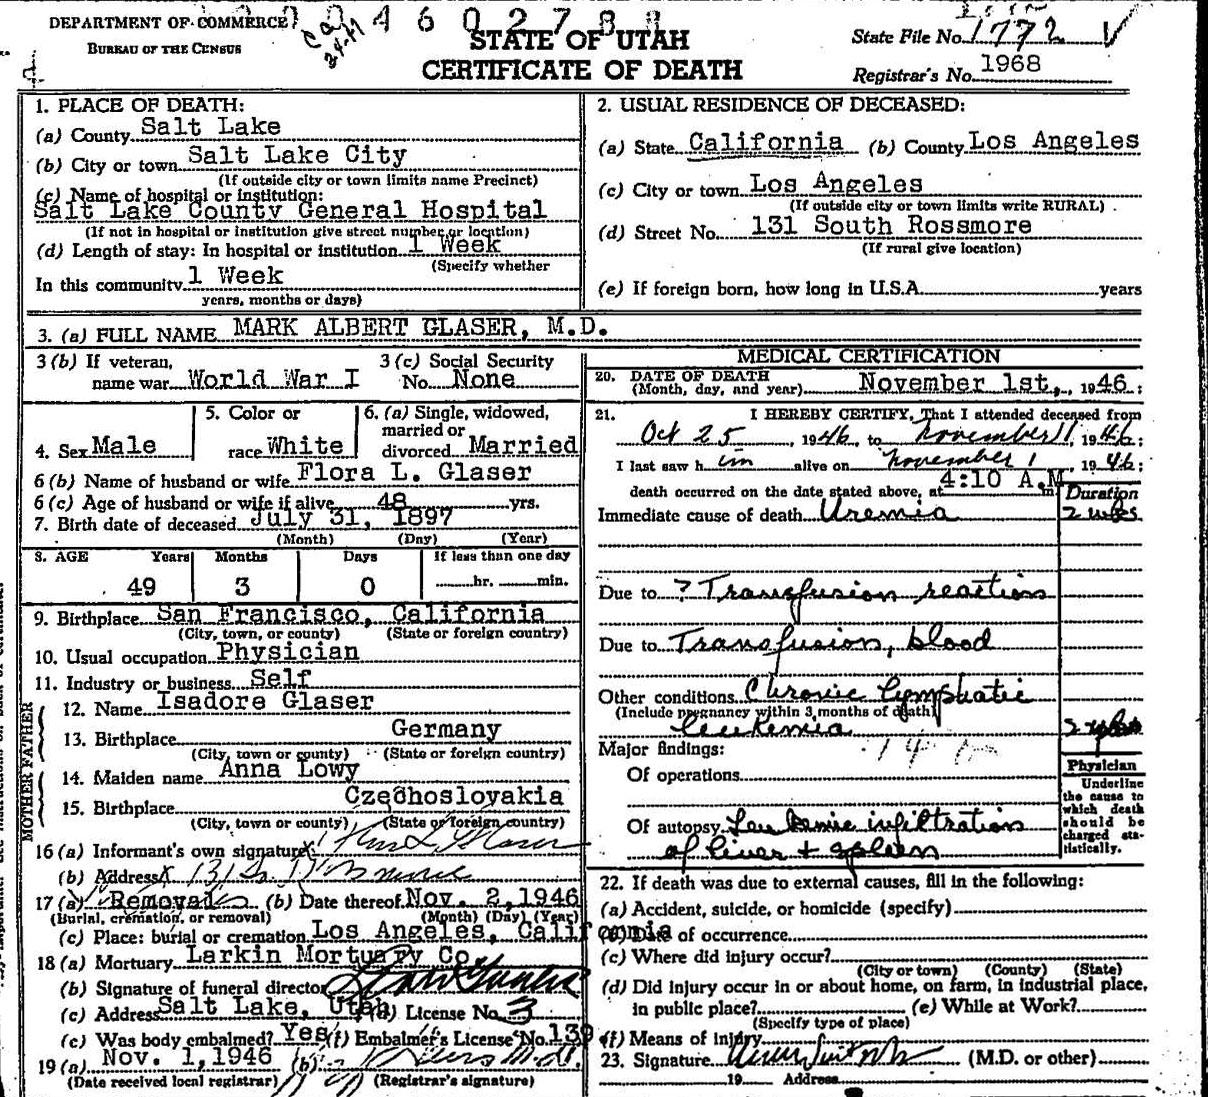 DEPARTMENT OF COMMERCE
BUREAU OF THE CENSUS
STATE OF UTAH
CERTIFICATE OF DEATH
State File No. 1772
Registrar's No. 1968
1. PLACE OF DEATH:
(a) County Salt Lake
(b) City or town Salt Lake City
(If outside city or town limits name Precinct)
(c) Name of hospital or institution:
Salt Lake County General Hospital
(If not in hospital or institution give street number or location)
(d) Length of stay: In hospital or institution 1 Week
(Specify whether
In this community 1 Week
years, months or days)
2. USUAL RESIDENCE OF DECEASED:
(a) State California (b) County Los Angeles
(c) City or town Los Angeles
(If outside city or town limits write RURAL)
(d) Street No. 131 South Rossmore
(If rural give location)
(e) If foreign born, how long in U.S.A. years
3. (a) FULL NAME MARK ALBERT GLASER, M.D.
3 (b) If veteran, name war World War I
3 (c) Social Security No. None
4. Sex Male
5. Color or race White
6. (a) Single, widowed, married or divorced Married
6 (b) Name of husband or wife Flora L. Glaser
6 (c) Age of husband or wife if alive 48 yrs.
7. Birth date of deceased July 31, 1897
(Month) (Day) (Year)
8. AGE Years Months Days If less than one day
49 3 0 hr. min.
9. Birthplace San Francisco, California
(City, town, or county) (State or foreign country)
10. Usual occupation Physician
11. Industry or business Self
FATHER
12. Name Isadore Glaser
13. Birthplace Germany
(City, town or county) (State or foreign country)
MOTHER
14. Maiden name Anna Lowy
15. Birthplace Czechoslovakia
(City, town or county) (State or foreign country)
16 (a) Informant's own signature
(b) Address
17 (a) Removal (b) Date thereof Nov. 2, 1946
(Burial, cremation, or removal) (Month) (Day) (Year)
(c) Place: burial or cremation Los Angeles, California
18 (a) Mortuary Larkin Mortuary Co
(b) Signature of funeral director
(c) Address Salt Lake, Utah (d) License No. 3
(e) Was body embalmed? Yes (f) Embalmer's License No. 139
19 (a) Nov. 1, 1946 (b) M.D.
(Date received local registrar) (Registrar's signature)
MEDICAL CERTIFICATION
20. DATE OF DEATH
(Month, day, and year) November 1st, 1946:
21. I HEREBY CERTIFY, That I attended deceased from
Oct 25, 1946, to November 1, 1946:
I last saw h im alive on November 1, 1946:
death occurred on the date stated above, at 4:10 A.M m
Duration
Immediate cause of death Uremia 2 wks
Due to ? Transfusion reaction
Due to Transfusion, blood
Other conditions Chronic lymphatic
(Include pregnancy within 3 months of death)
leukemia
Major findings:
Of operations
Of autopsy Leukemic infiltration
of liver + spleen
Physician
Underline
the cause to
which death
should be
charged sta-
tistically.
22. If death was due to external causes, fill in the following:
(a) Accident, suicide, or homicide (specify)
(b) Date of occurrence
(c) Where did injury occur?
(City or town) (County) (State)
(d) Did injury occur in or about home, on farm, in industrial place,
in public place? (e) While at Work?
(Specify type of place)
(f) Means of injury
23. Signature (M.D. or other)
19 Address